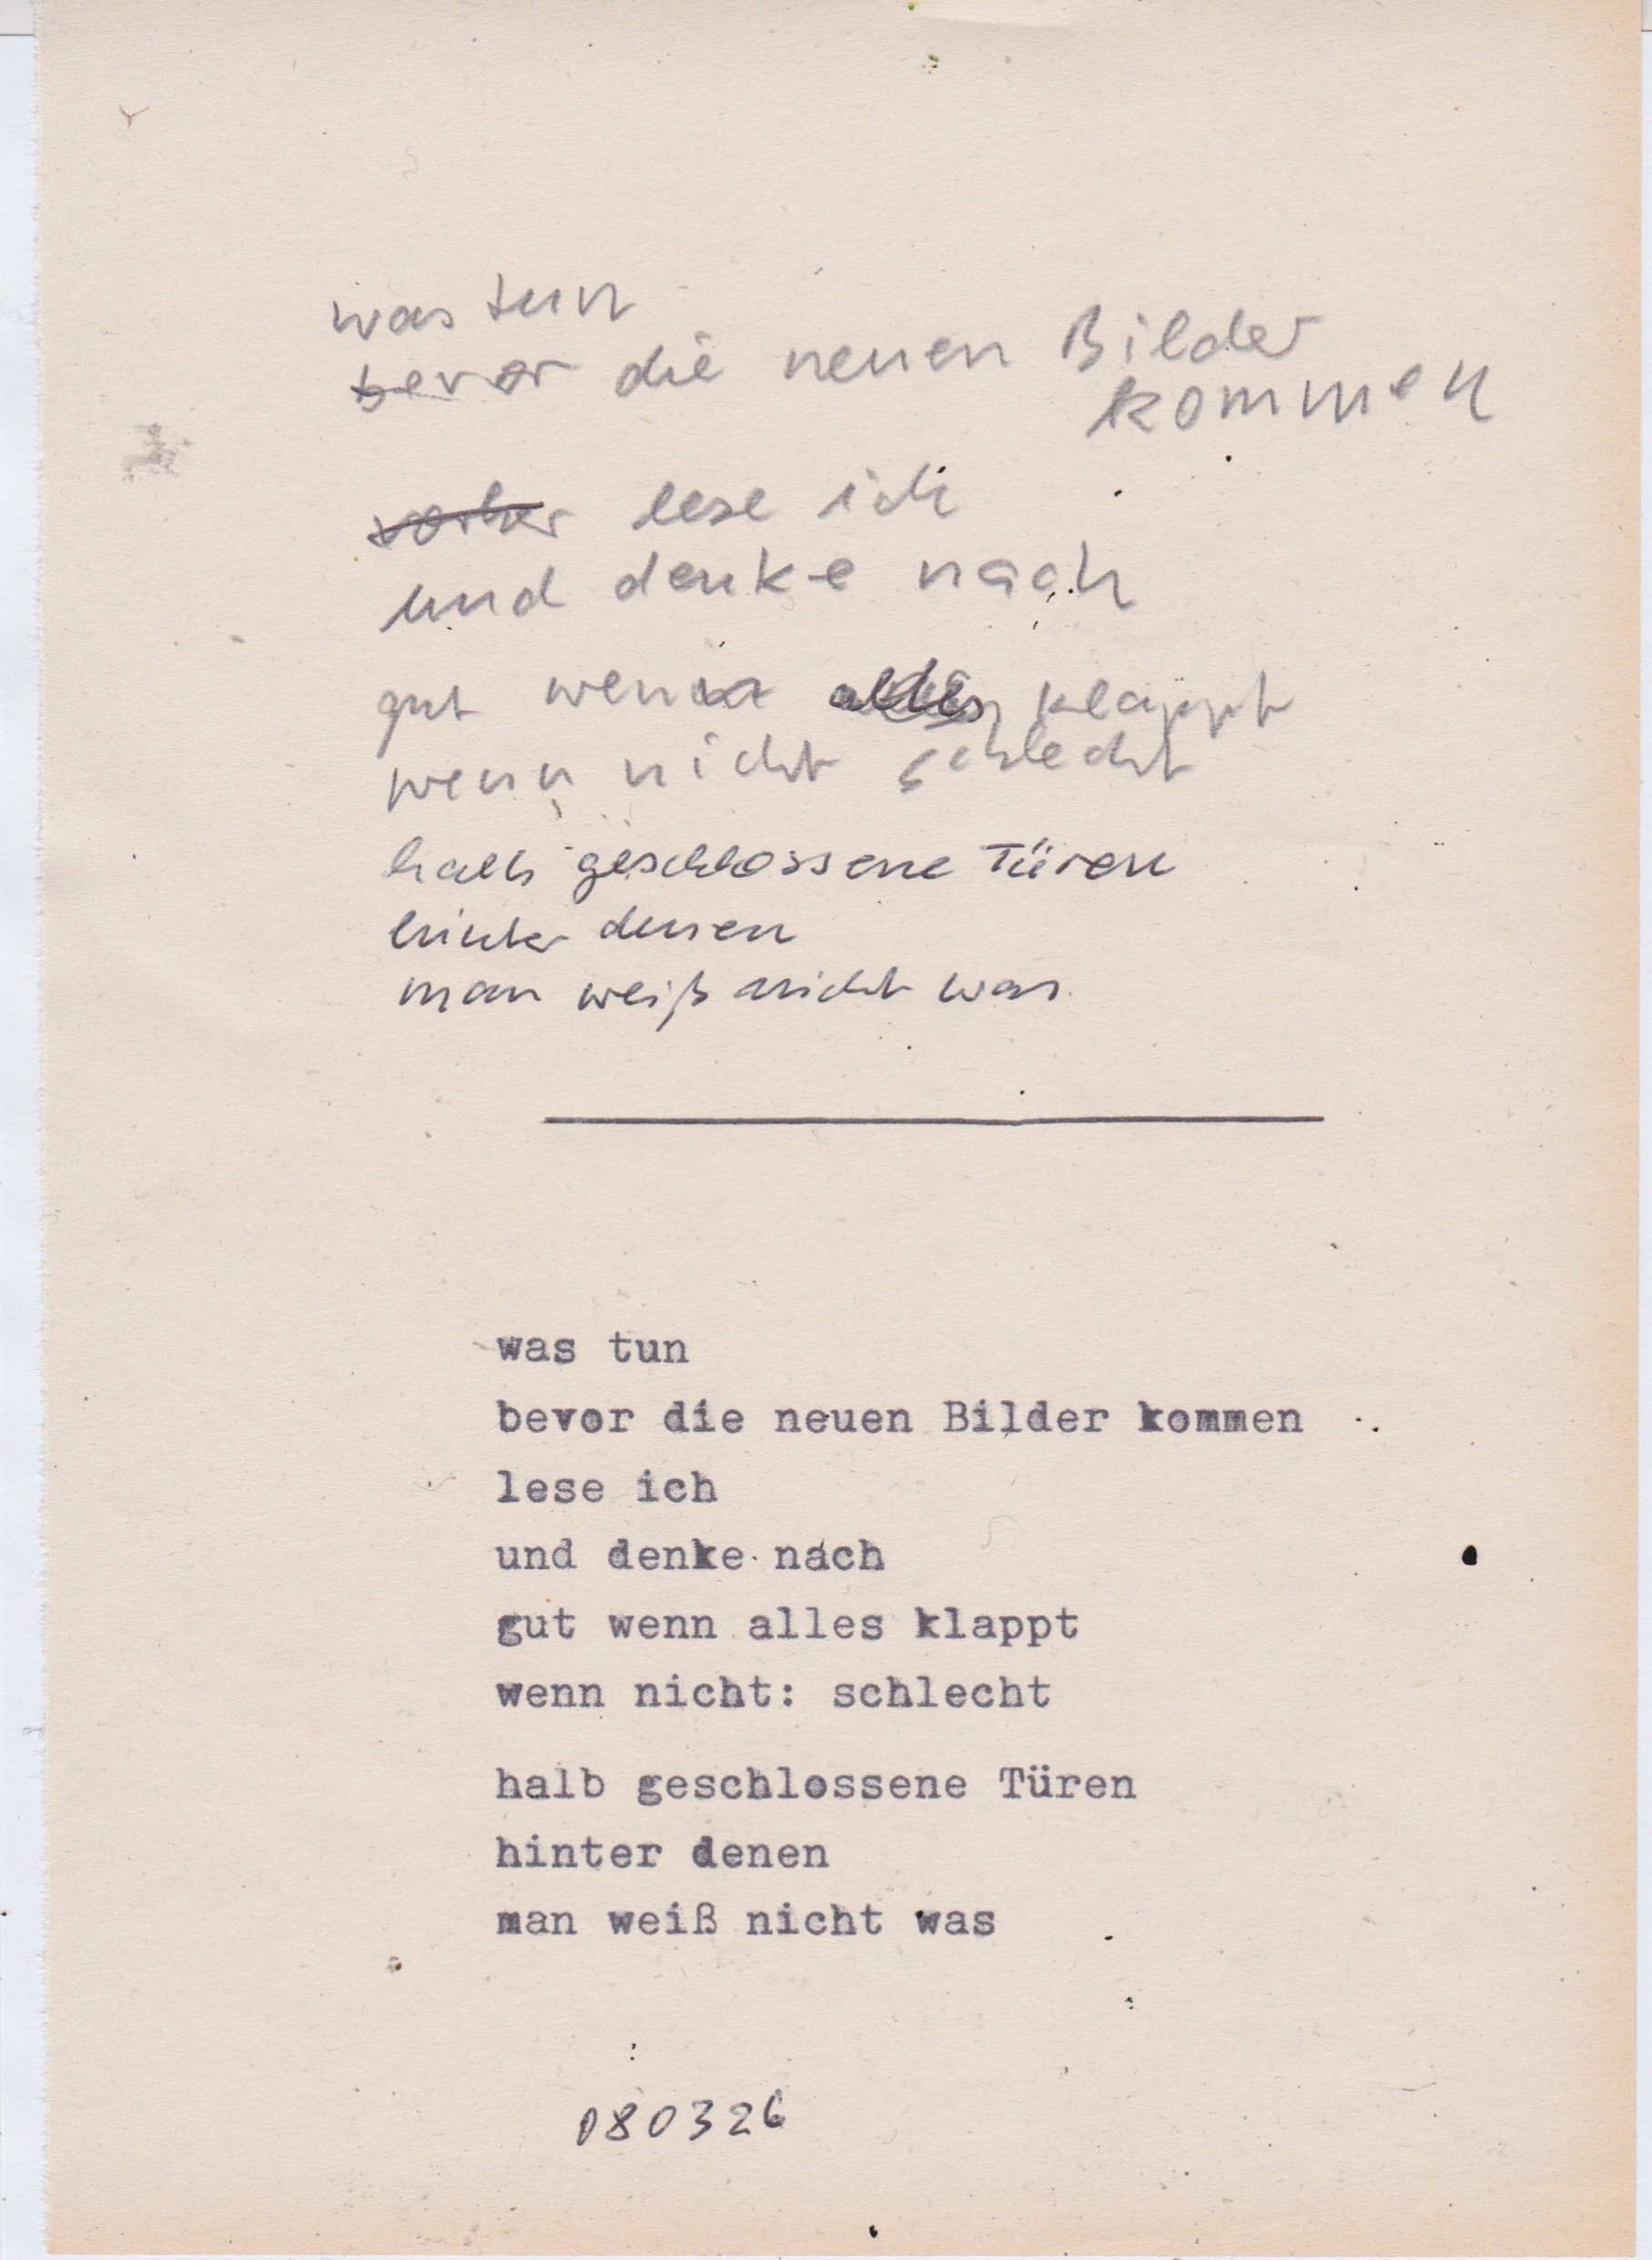 was tun
bevor die neuen Bilder
kommen
vorher lese ich
und denke nach
gut wenn alles klappt
wenn nicht schlecht
halb geschlossene Türen
hinter denen
man weiß nicht was
was tun
bevor die neuen Bilder kommen
lese ich
und denke nach
gut wenn alles klappt
wenn nicht: schlecht
halb geschlossene Türen
hinter denen
man weiß nicht was
080326